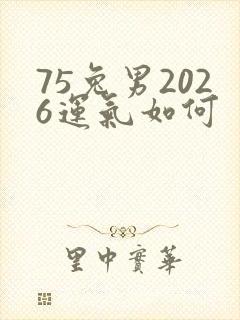 75兔男202
6運氣如何
里中實華